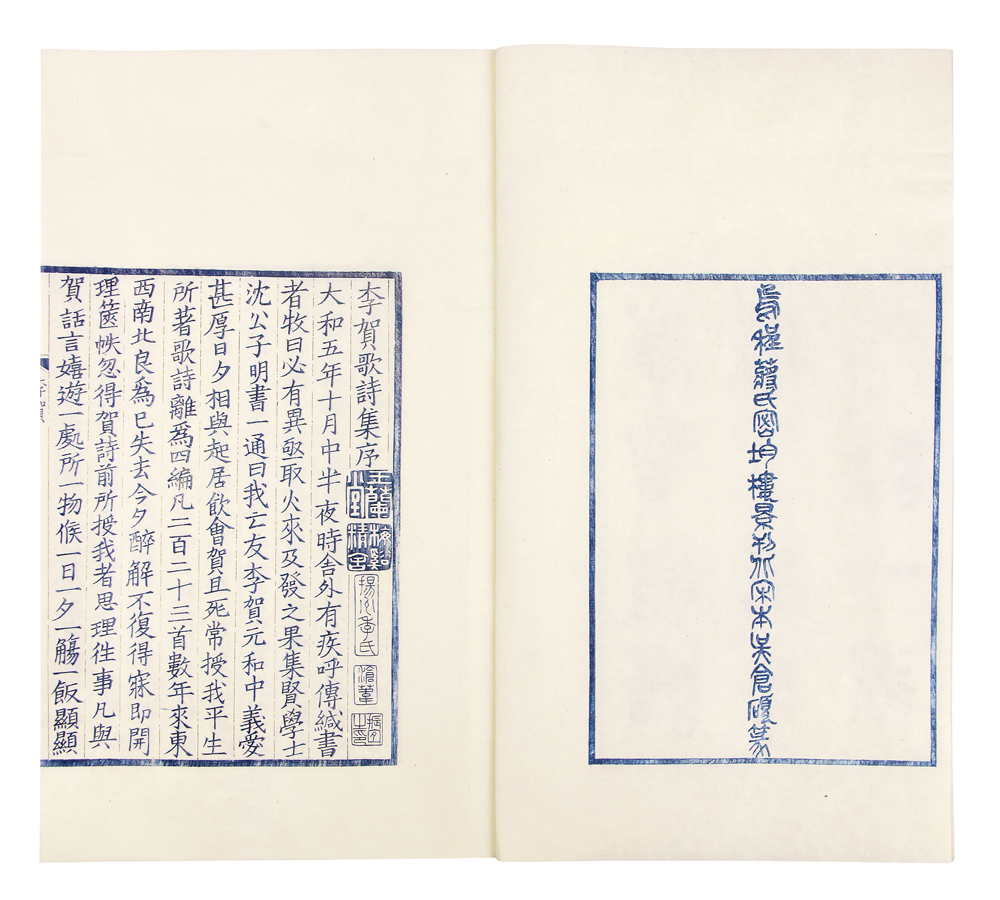 烏程蔣氏密均樓景刊北宋本吳倉碩篆
李賀歌詩集序
玉蘭堂
梅谿精舍
揚州季氏
滄葦
振宜之印
大和五年十月中半夜時舍外有疾呼傳緘書
者牧曰必有異亟取火來及發之果集賢學士
沈公子明書一通曰我亡友李賀元和中義愛
甚厚日夕相與起居飲會賀且死常授我平生
所著歌詩離爲四編凡二百二十三首數年來東
西南北良爲已失去今夕醉解不復得寐即開
理篋帙忽得賀詩前所授我者思理徃事凡與
賀話言嬉遊一處所一物候一日一夕一觴一飯顯顯